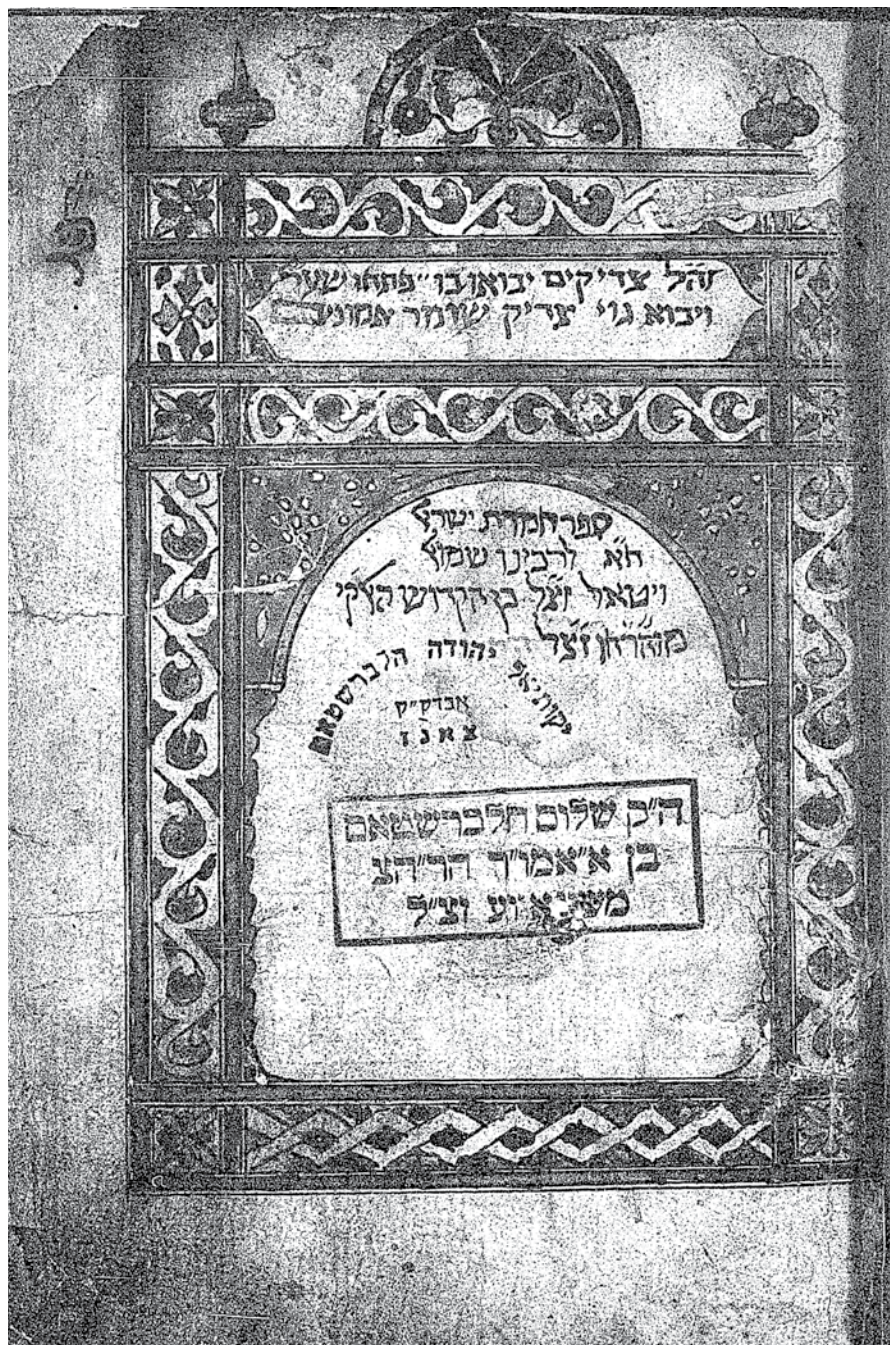 צדיקים יבואו בו פתחו
ויבוא גוי צדיק שומר
ספר חמדת ישראל
ח״א לרבינו שמואל
ויטאל זצ״ל בן הקדוש
מוהר״חו זצ״ל
יקותיאל יהודה הלברשטאם
אבדק״ק
צאנז
ה״ק שלום הלברשטאם
בן א״אמו״ר הר״הצ
זצ״ל